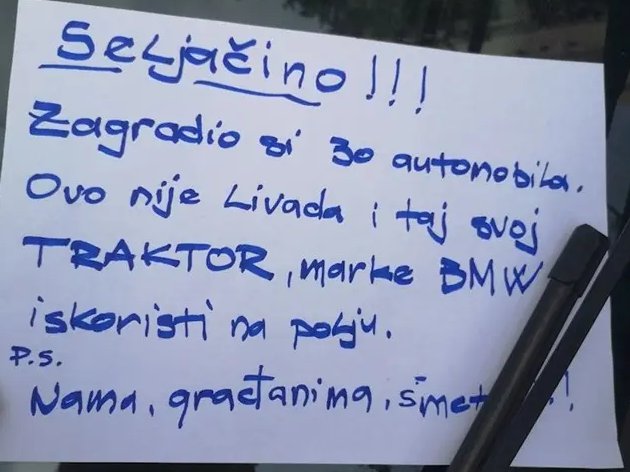 Seljačino!!!
Zagradio si 30 automobila.
Ovo nije Livada i taj svoj
TRAKTOR, marke BMW
iskoristi na polju.
P.S.
Nama, građanima,